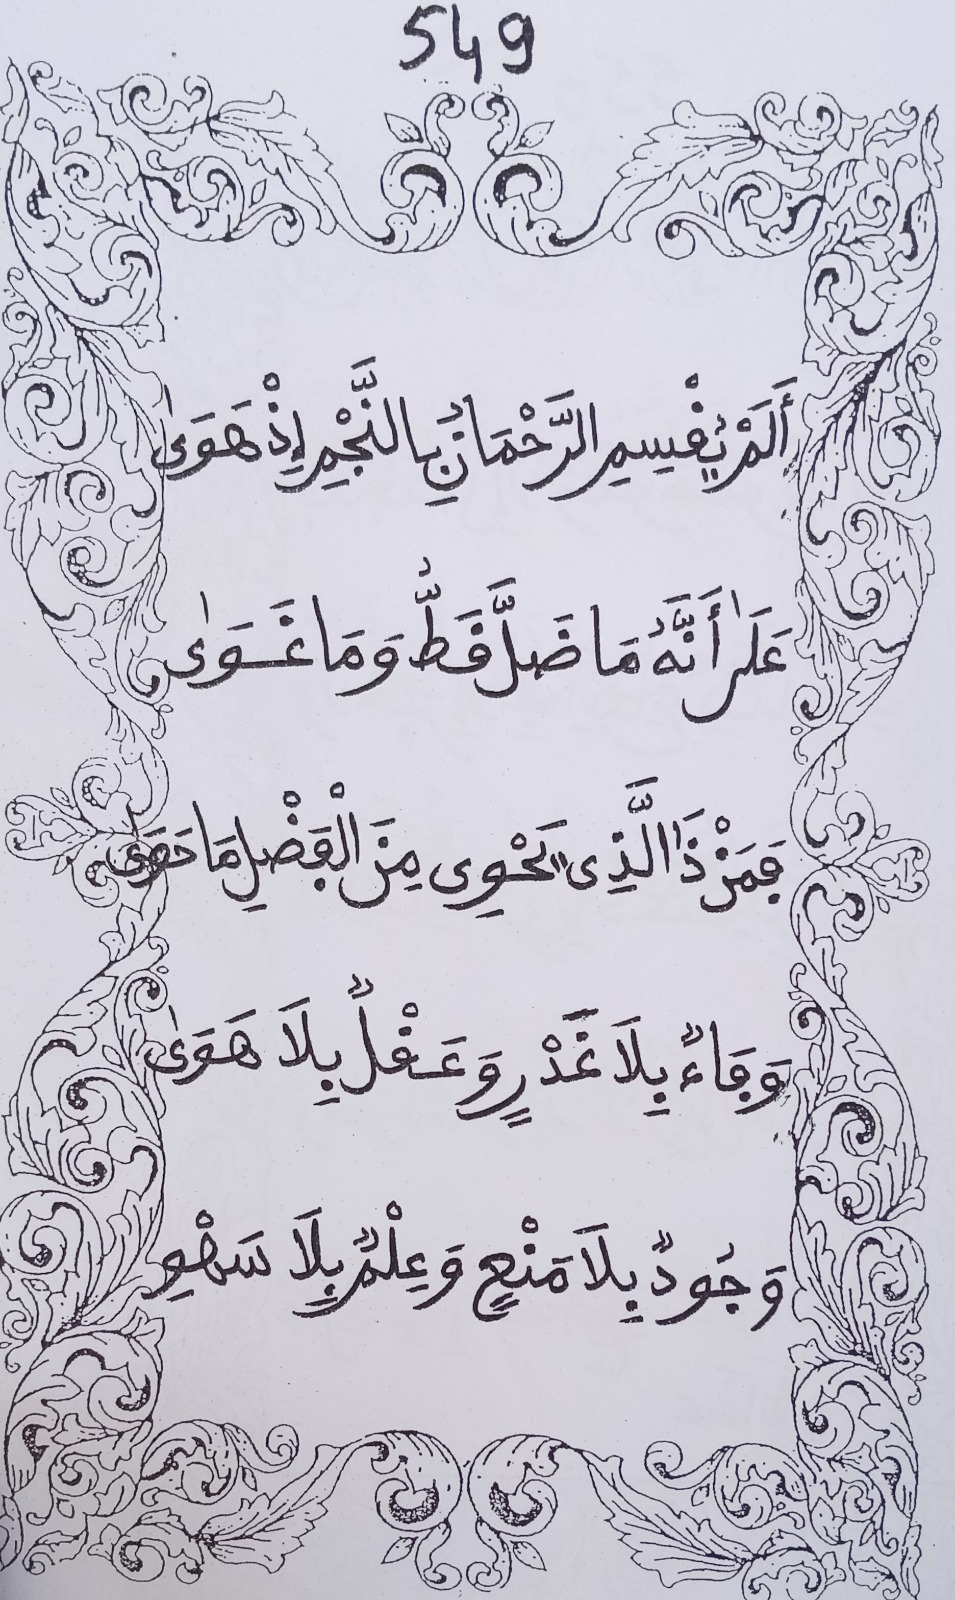 549
أَلَمْ يُقْسِمِ الرَّحْمَانُ بِالنَّجْمِ إِذْ هَوَىٰ
عَلَىٰ أَنَّهُ مَا ضَلَّ قَطُّ وَمَا غَوَىٰ
فَمَنْ ذَا الَّذِى يَحْوِى مِنَ الْفَضْلِ مَا حَوَىٰ
وَفَاءٌ بِلَا غَدْرٍ وَعَقْلٌ بِلَا هَوَىٰ
وَجُودٌ بِلَا مَنْعٍ وَعِلْمٌ بِلَا سَهْوِ